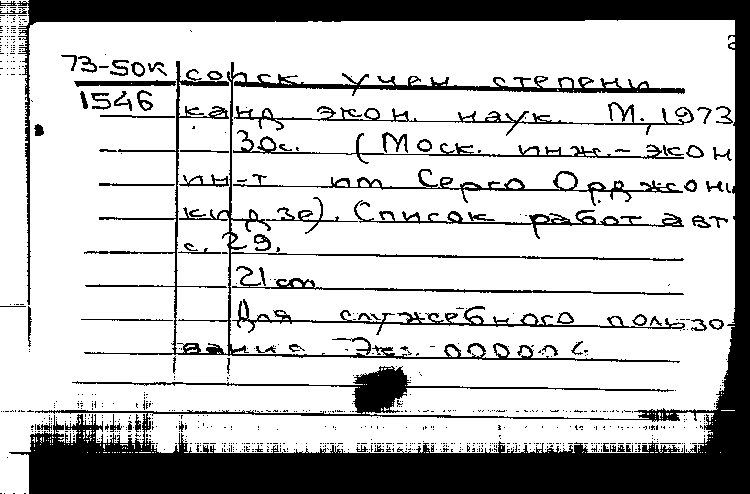 73-50к соиск. учен. степени
1546 канд. экон. наук. М., 1973
30с. (Моск. инж.-экон
ин-т им. Серго Орджони
кидзе). Список работ авт
с. 29.
21 cm
Для служебного пользо-
вания. Экз. 000004